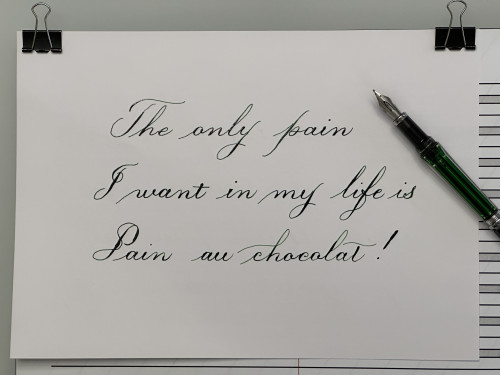 The only pain
I want in my life is
Pain au chocolat!